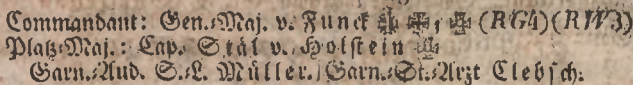 Commandant: Gen.-Maj. v. Funck ✠, ✠ (RG4) (RW3)
Platz-Maj.: Cap. Stål v. Holstein
Garn.-Aud. S. L. Müller. Garn.-St.-Arzt Clebsch.